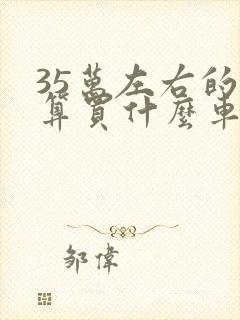 35萬左右的
算買什麼車
鄒偉